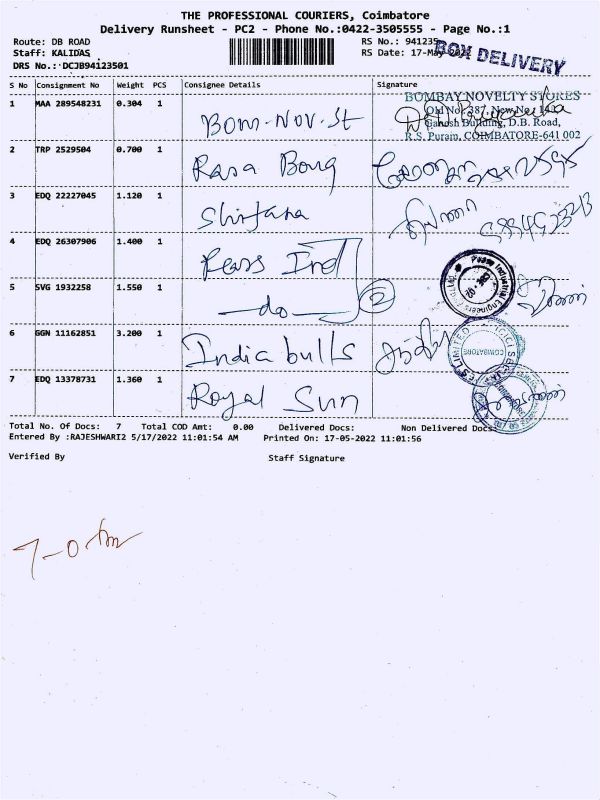 THE PROFESSIONAL COURIERS, Coimbatore
Delivery Runsheet - PC2 - Phone No.:0422-3505555 - Page No.:1
Route: DB ROAD
RS No.: 941235
Staff: KALIDAS
RS Date: 17-May-2022
BOX DELIVERY
DRS No.: DCJB94123501
S No Consignment No Weight PCS Consignee Details Signature
1 MAA 289548231 0.304 1 Bom-Nov-St
BOMBAY NOVELTY STORES
Old No. 387, New No.
Ganesh Building, D.B. Road,
R.S. Puram, COIMBATORE-641 002
2 TRP 2529504 0.700 1 Rasa Bong
3 EDQ 22227045 1.120 1
4 EDQ 26307906 1.400 1 Pears Ind
5 SVG 1932258 1.550 1 -do- 2
6 GGN 11162851 3.200 1 India bulls
LIMITED ICICI SEC
COIMBATORE
7 EDQ 13378731 1.360 1 Royal Sun
Total No. Of Docs: 7 Total COD Amt: 0.00 Delivered Docs: Non Delivered Docs:
Entered By :RAJESHWARI2 5/17/2022 11:01:54 AM Printed On: 17-05-2022 11:01:56
Verified By Staff Signature